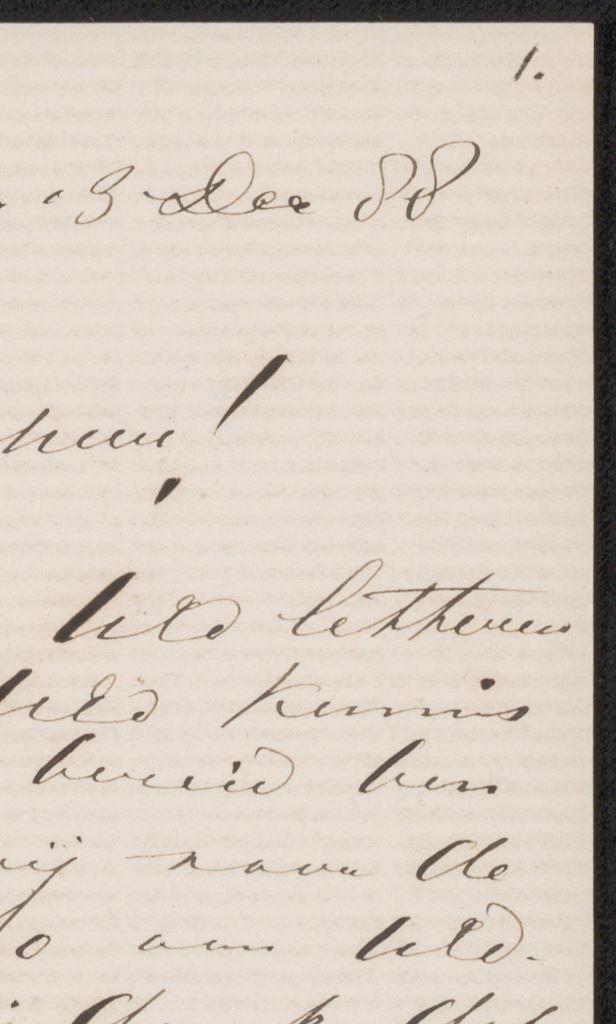 1.
3 Dec 88
heer!
UEd letteren
UEd kennis
bereid ben
naar de
aan UEd.